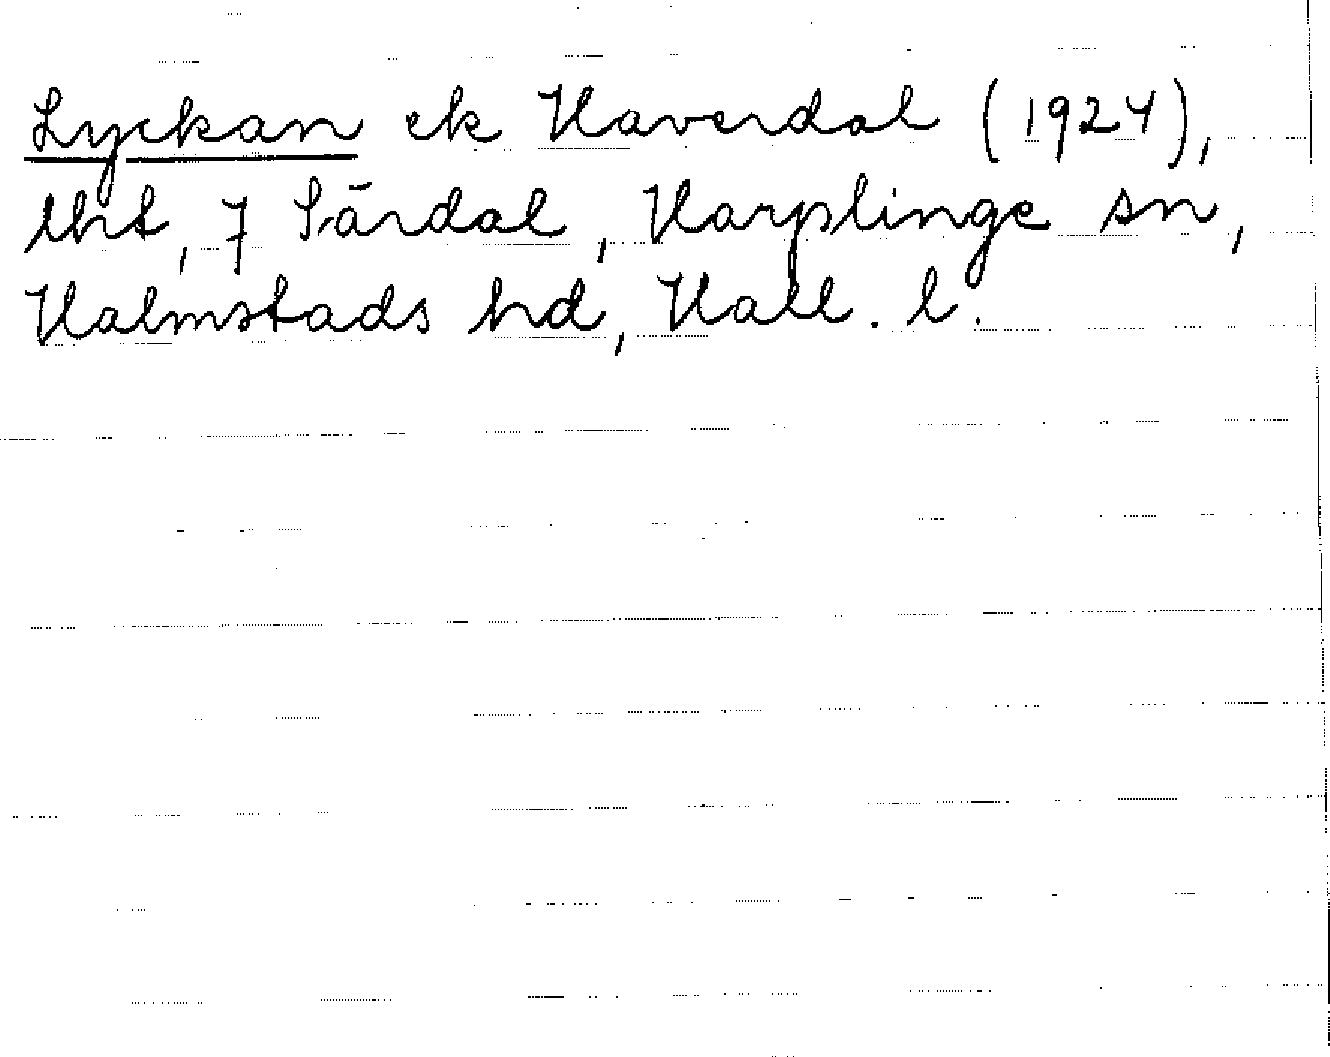 Lyckan ek Haverdal (1924),
lht, 7 Särdal, Harplinge sn,
Halmstads hd, Hall. l.